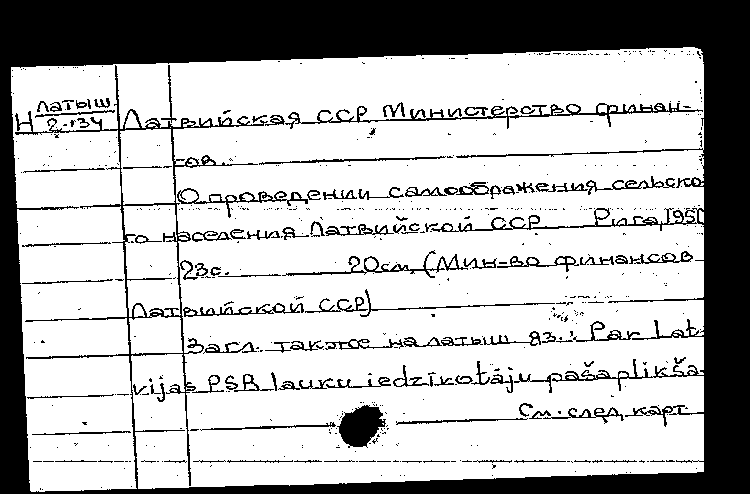 латыш.
Н 2-134
Латвийская ССР Министерство финан-
сов.
О проведении самоображения сельско
го населения Латвийской ССР Рига, 1951
23с. 20см, (Мин-во финансов
Латвийской ССР)
Загл. также на латыш яз.: Par Lat-
vijas PSR lauku iedzīvotāju pašaplikša-
См. след. карт